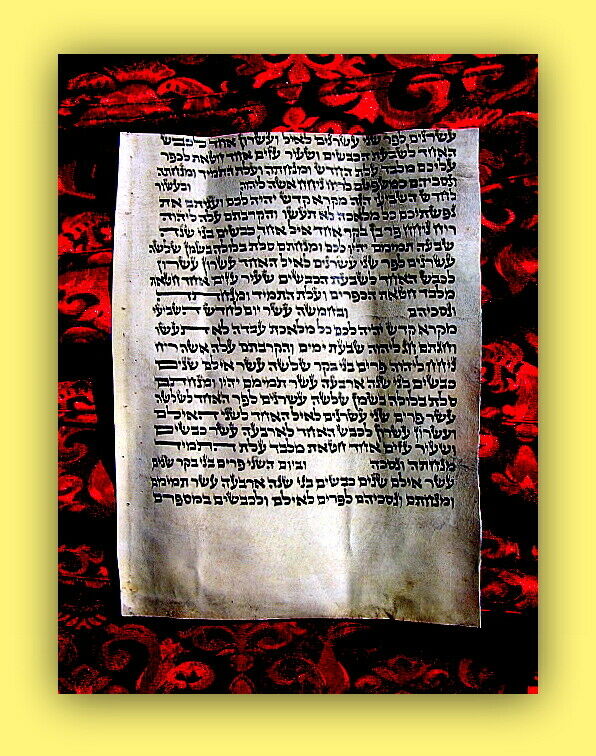 עשרנים לפר שני עשרנים לאיל ועשרון אחד לכבש
האחד לשבעת הכבשים ושעיר עזים אחד חטאת לכפר
עליכם מלבד עלת החדש ומנחתה ועלת התמיד ומנחתה
ונסכיהם כמשפטם לריח ניחח אשה ליהוה ובעשור
לחדש השביעי הזה מקרא קדש יהיה לכם ועניתם את
נפשתיכם כל מלאכה לא תעשו והקרבתם עלה ליהוה
ריח ניחח פר בן בקר אחד איל אחד כבשים בני שנה
שבעה תמימם יהיו לכם ומנחתם סלת בלולה בשמן שלשה
עשרנים לפר שני עשרנים לאיל האחד עשרון עשרון
לכבש האחד לשבעת הכבשים שעיר עזים אחד חטאת
מלבד חטאת הכפרים ועלת התמיד ומנחתה
ונסכיהם ובחמשה עשר יום לחדש השביעי
מקרא קדש יהיה לכם כל מלאכת עבדה לא תעשו
וחגתם חג ליהוה שבעת ימים והקרבתם עלה אשה ריח
ניחח ליהוה פרים בני בקר שלשה עשר אילם שנים
כבשים בני שנה ארבעה עשר תמימם יהיו ומנחתם
סלת בלולה בשמן שלשה עשרנים לפר האחד לשלשה
עשר פרים שני עשרנים לאיל האחד לשני האילם
ועשרון עשרון לכבש האחד לארבעה עשר כבשים
ושעיר עזים אחד חטאת מלבד עלת התמיד
מנחתה ונסכה וביום השני פרים בני בקר שנים
עשר אילם שנים כבשים בני שנה ארבעה עשר תמימם
ומנחתם ונסכיהם לפרים לאילם ולכבשים במספרם